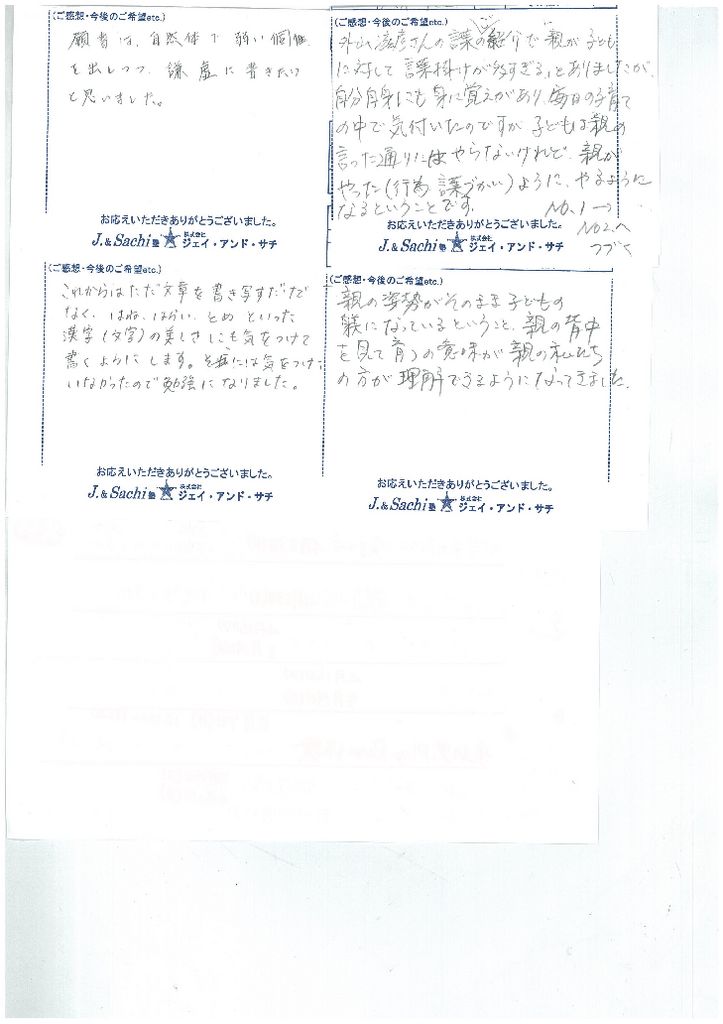 (ご感想・今後のご希望etc.)
願書は、自然体で 強い個性
を出しつつ、謙虚に書きたい
と思いました。
お応えいただきありがとうございました。
J.&Sachi塾 株式会社 ジェイ・アンド・サチ
(ご感想・今後のご希望etc.)
外山滋彦さんの言葉の紹介で「親が子ども
に対して言葉掛けが多すぎる」とありましたが、
自分自身にも身に覚えがあり、毎日の子育て
の中で気付いたのですが 子どもは親の
言った通りにはやらないけれど、親が
やった(行為、言葉づかい)ように、やるように
なるということです。
NO.1→
お応えいただきありがとうございました。
NO.2へ
J.&Sachi塾 株式会社 ジェイ・アンド・サチ
つづく
(ご感想・今後のご希望etc.)
これからはただ文章を書き写すだけで
なく、はね、はらい、とめ といった
漢字(文字)の美しさにも気をつけて
書くようにします。そこには気をつけて
いなかったので勉強になりました。
お応えいただきありがとうございました。
J.&Sachi塾 株式会社 ジェイ・アンド・サチ
(ご感想・今後のご希望etc.)
親の姿勢がそのまま子どもの
躾になっているということ、親の背中
を見て育つの意味が親の私たち
の方が理解できるようになってきました。
お応えいただきありがとうございました。
J.&Sachi塾 株式会社 ジェイ・アンド・サチ